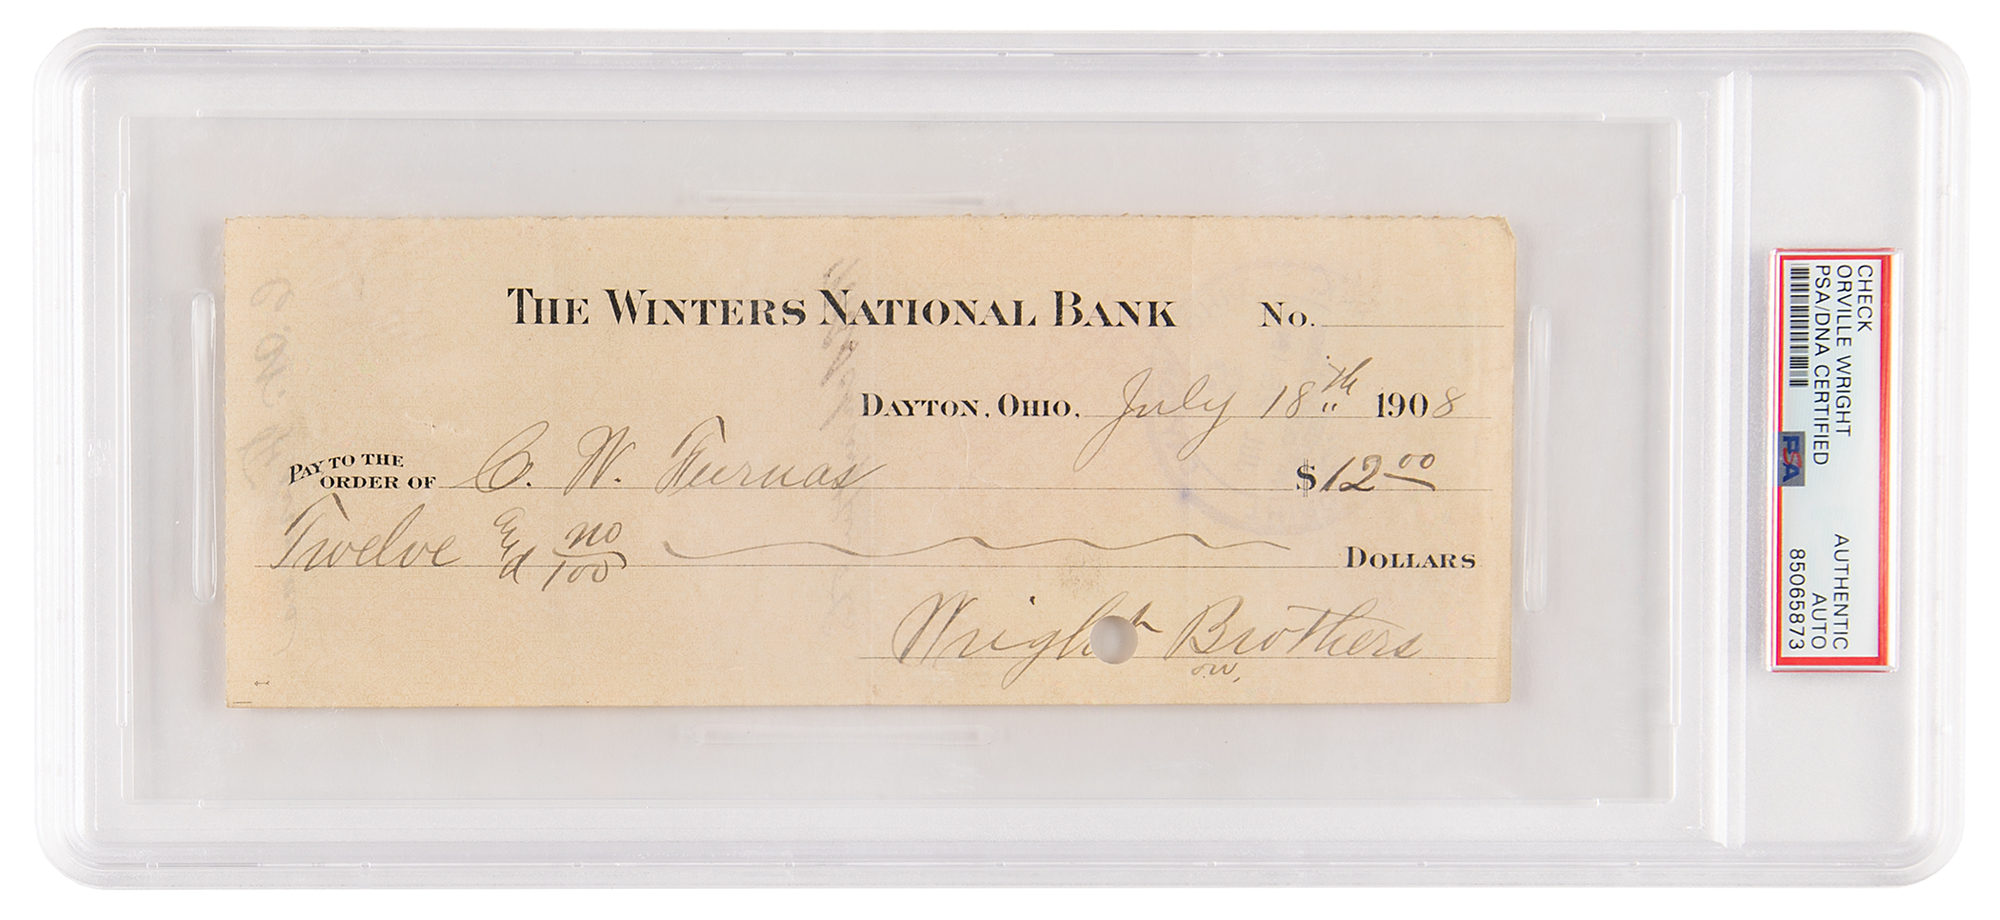 THE WINTERS NATIONAL BANK No.
DAYTON, OHIO, July 18th 1908
PAY TO THE ORDER OF C. W. Furnas $12 00
Twelve and no/100 DOLLARS
Wright Brothers
O.W.
CHECK
ORVILLE WRIGHT
PSA/DNA CERTIFIED
PSA
AUTHENTIC
AUTO
85065873